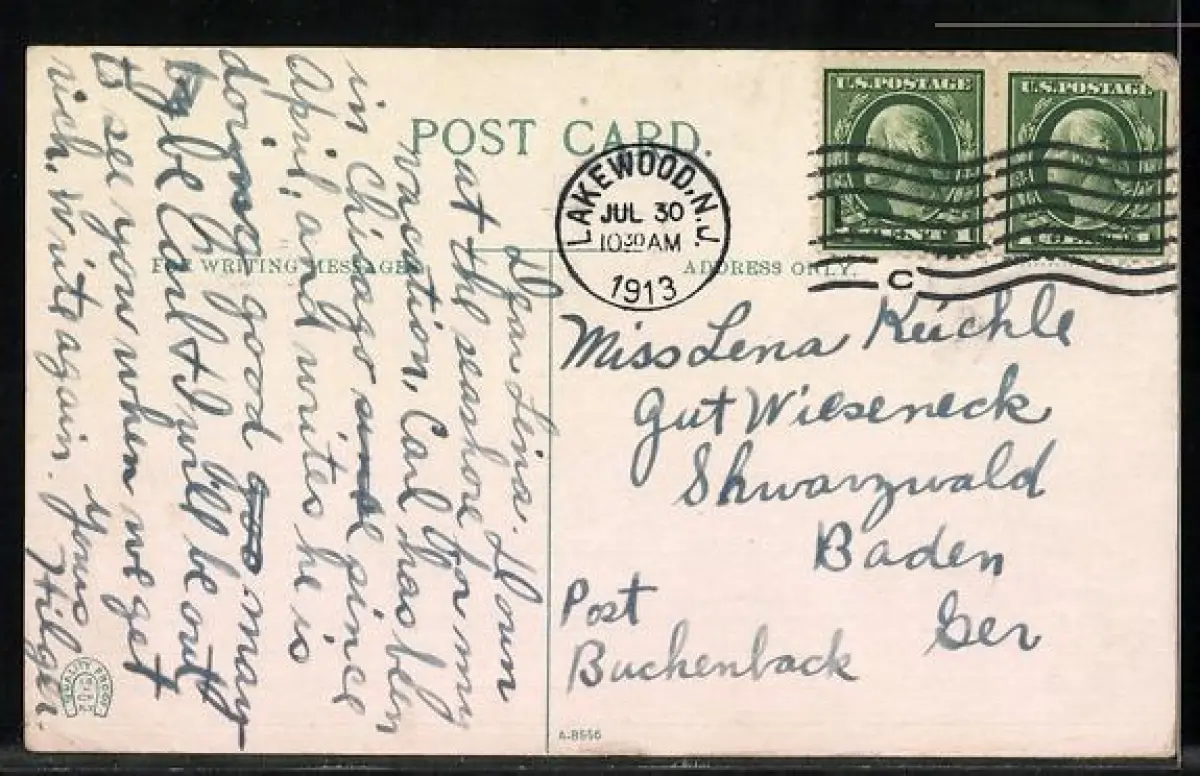 POST CARD.
FOR WRITING MESSAGES
ADDRESS ONLY.
U.S. POSTAGE
U.S. POSTAGE
LAKEWOOD, N.J.
JUL 30
10 30 AM
1913
C
Dear Lina. Down
at the seashore for my
vacation, Carl has been
in Chicago since
April, and writes he is
doing good may
be Carl & I will be out
to see you when we get
rich. Write again.
Yours
Hilger.
Miss Lena Küchle
Gut Wieseneck
Shwarzwald
Baden
Ger
Post
Buchenback
A-8556